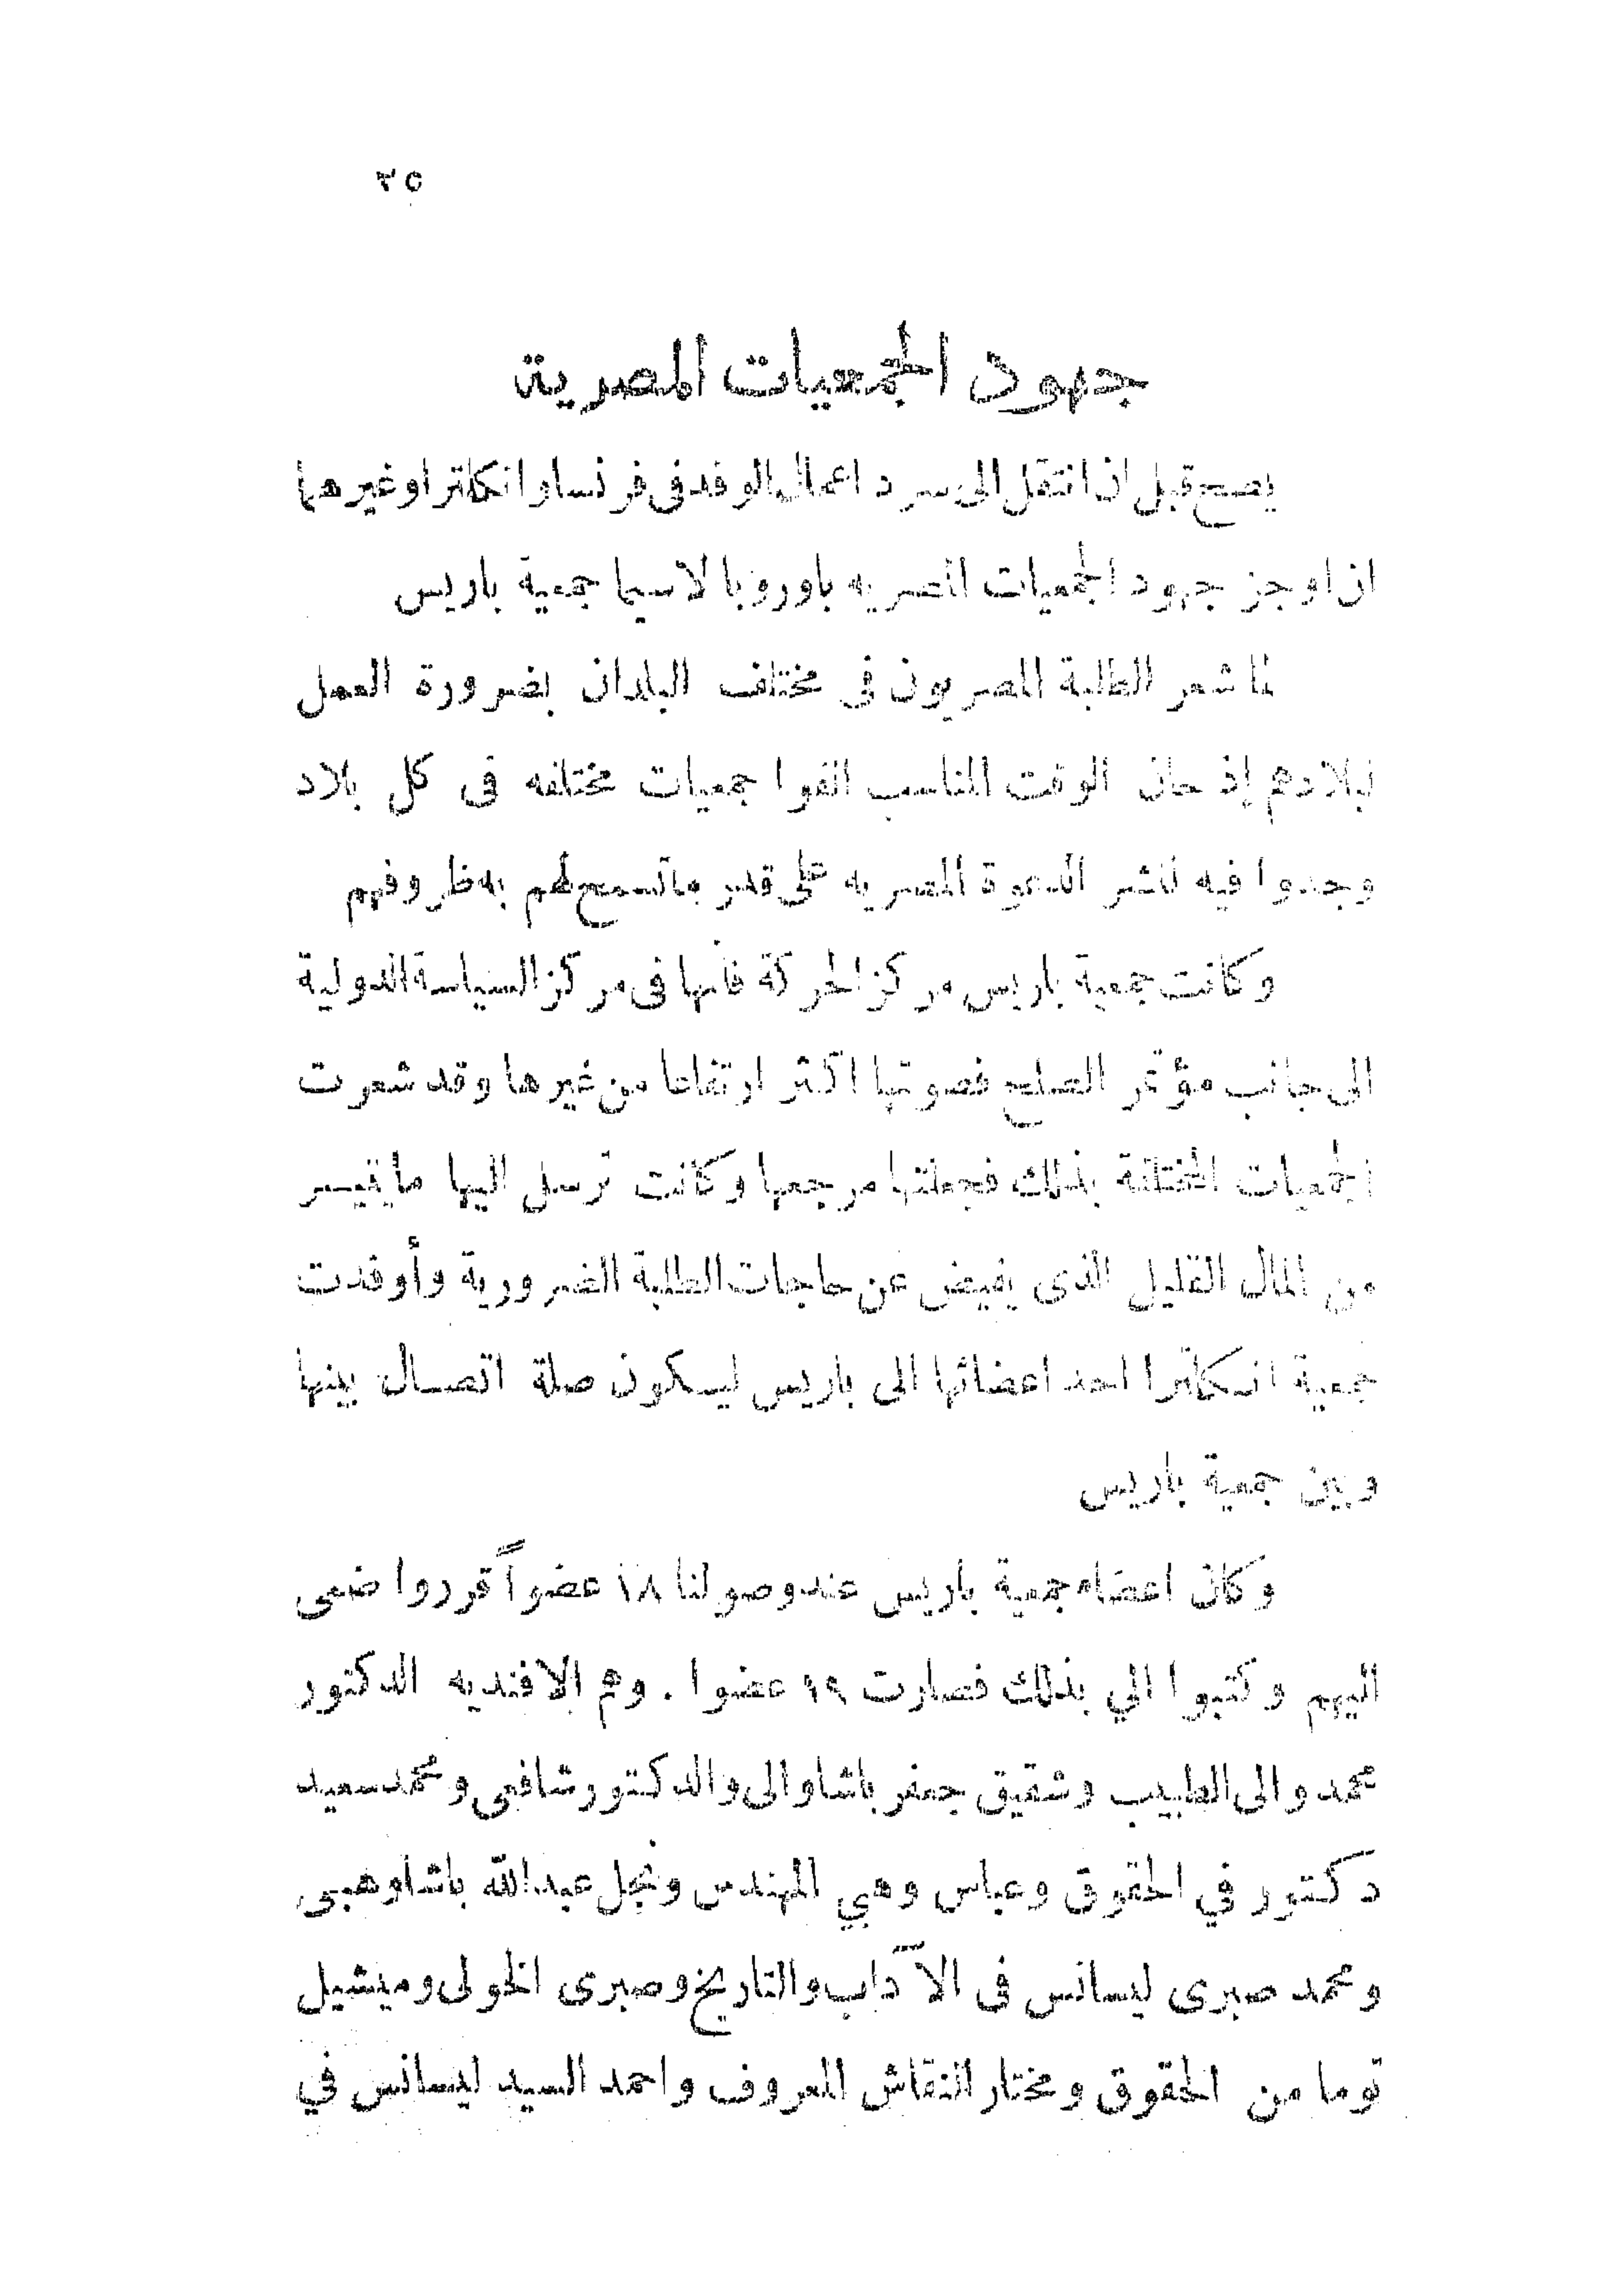 ٢٥
جهود الجمعيات المصرية
يصح قبل ان انتقل الى سرد اعمال الوفد فى فرنسا وانكلترا وغيرهما
ان اوجز جهود الجمعيات المصريه باوروبا لاسيما جمعية باريس
لما شعر الطلبة المصريون فى مختلف البلدان بضرورة العمل
لبلادهم إذ حان الوقت المناسب الفوا جمعيات مختلفه فى كل بلاد
وجدوا فيه لنشر الدعوة المصريه على قدر ما تسمح لهم به ظروفهم
وكانت جمعية باريس مركز الحركة فأنها فى مركز السياسة الدولية
الى جانب مؤتمر الصلح فصوتها اكثر ارتفاعا من غيرها وقد شعرت
الجمعيات المختلفة بذلك فجعلتها مرجعها وكانت ترسل اليها ما تيسر
من المال القليل الذى يفيض عن حاجات الطلبة الضرورية وأوفدت
جمعية انكلترا احد اعضائها الى باريس ليكون صلة اتصال بينها
وبين جمعية باريس
وكان اعضاء جمعية باريس عند وصولنا ١٨ عضواً قرروا ضمى
اليهم وكتبوا الي بذلك فصارت ١٩ عضوا . وهم الافنديه الدكتور
محمد والى الطبيب وشقيق جعفر باشا والى والدكتور شافعى ومحمد سعيد
دكتور في الحقوق وعباس وهبي المهندس ونجل عبد الله باشا وهبى
ومحمد صبرى ليسانس فى الآداب والتاريخ وصبرى الخولى وميشيل
توما من الحقوق ومختار النقاش المعروف واحمد السيد ليسانس في